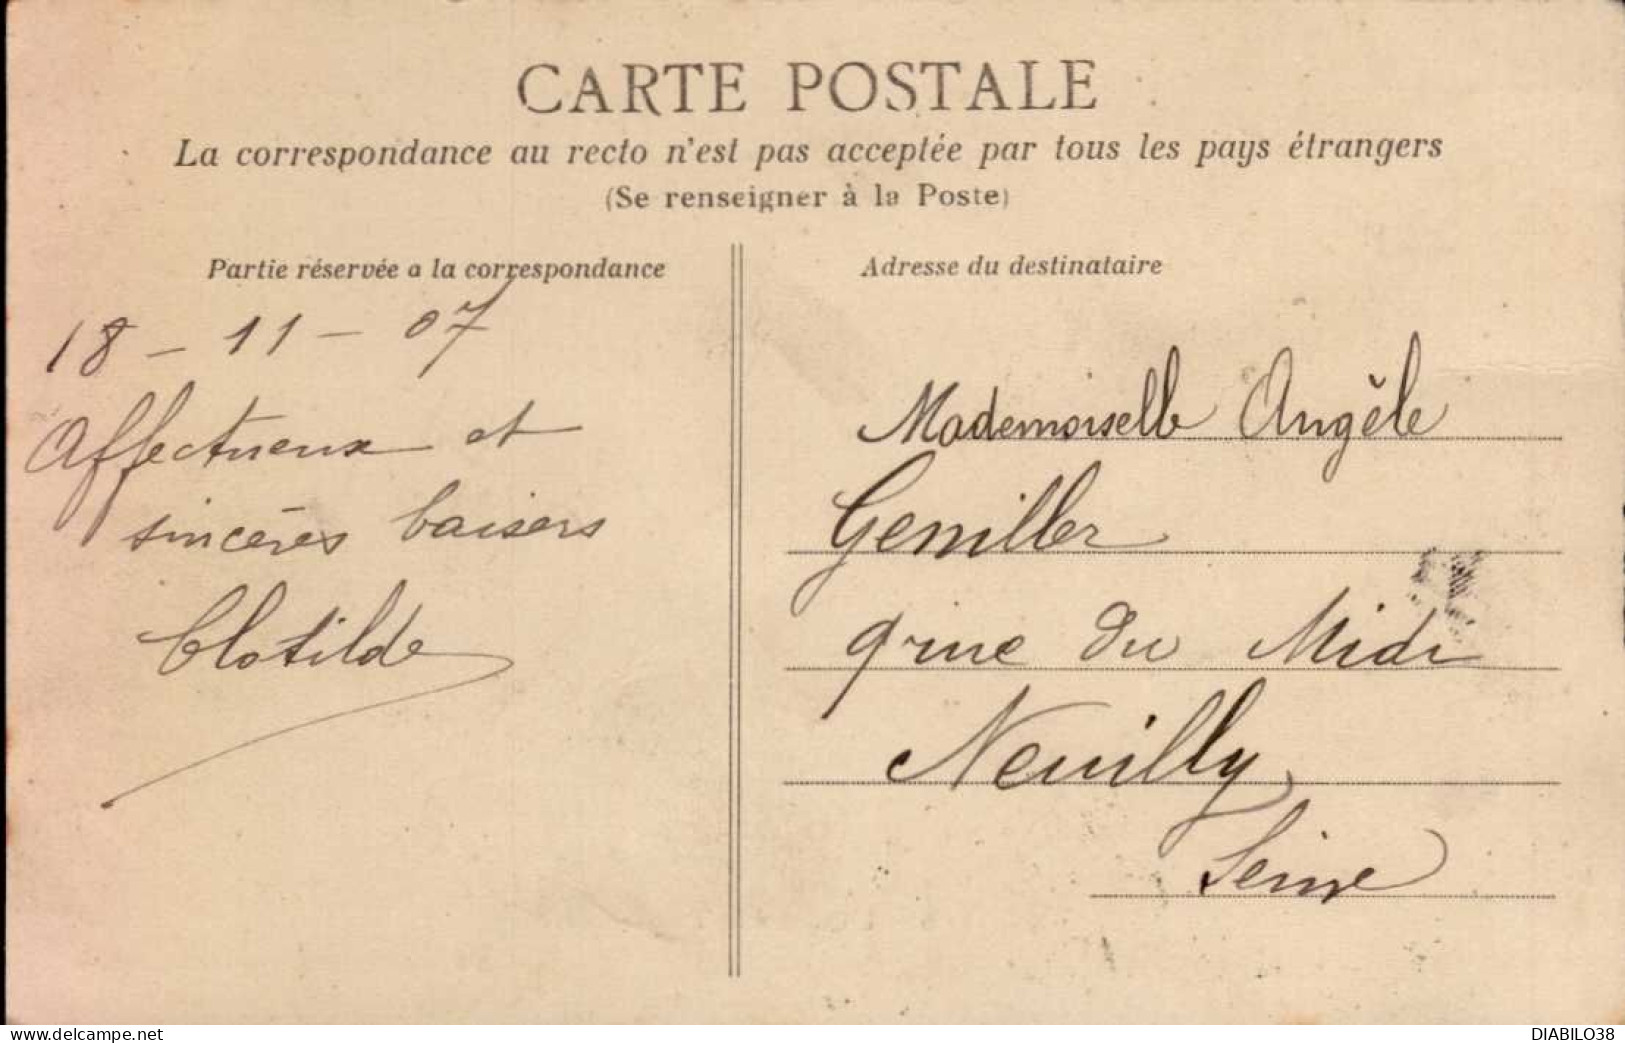 CARTE POSTALE
La correspondance au recto n'est pas acceptée par tous les pays étrangers
(Se renseigner à la Poste)
Partie réservée a la correspondance
18 - 11 - 07
Affectueux et
sincères baisers
Clotilde
Adresse du destinataire
Mademoiselle Angèle
Geniller
9 rue du Midi
Neuilly
Seine
www.delcampe.net
DIABILO38